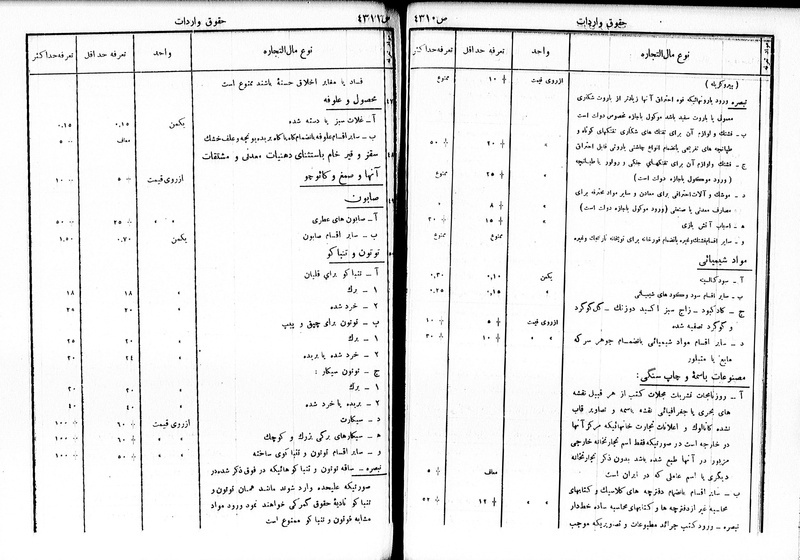 ص ۴۳۱۰ حقوق واردات
نوع مال‌التجاره واحد تعرفه حداقل تعرفه حداکثر
( پیروکریله ) ازروی قیمت ۱۰ ممنوع
تبصره ورود باروتهائیکه قوه احتراق آنها زیادتر از باروت شکاری
معمولی یا باروت سفید باشد موکول باجازه مخصوص دولت است
ب ـ فشنگ و لوازم آن برای تفنگ های شکاری تفنگهای کوتاه و
طپانچه های تفریحی بانضمام انواع چاشنی باروتی قابل احتراق » ۲۰ ۵۰
ج ـ فشنگ و لوازم آن برای تفنگهای جنگی و رولور یا طپانچه
( ورود موکول باجازه دولت است ) » ۲۵ ممنوع
د ـ موشک و آلات احتراقی برای معادن و سایر مواد محترقه برای
مصارف معدنی یا صنعتی ( ورود موکول باجازه دولت است ) » ۸
ه ـ اسباب آتش بازی » ۱۵ ۳۰
و ـ سایر اقسام فشنگ وغیره بانضمام قورخانه برای توپخانه نارنجک وغیره ممنوع ممنوع
مواد شیمیائی
آ ـ سود کالسینه یکمن ۰٫۱۰ ۰٫۳۰
ب ـ سایر اقسام سود وکسود های شیمیائی » ۰٫۱۵ ۰٫۲۵
ج ـ کات کبود ـ زاج سبز اکسید دوزنک ـ گل گوگرد
و گوگرد تصفیه شده ازروی قیمت ۵ ۱۰
د ـ سایر اقسام مواد شیمیائی بانضمام جوهر سرکه
مایع یا متبلور » » ۱۰ ۳۰
مصنوعات باسمه و چاپ سنگی :
آ ـ روزنامجات نشریات مجلات کتب از هر قبیل نقشه
های بحری یا جغرافیائی نقشه باسمه و تصاویر قاب
نشده کاتالوک و اعلانات تجارت خانهائیکه مرکز آنها
در خارجه است در صورتیکه فقط اسم تجارتخانه خارجی
مزبور در آنها طبع شده باشد بدون ذکر تجارتخانه
دیگری یا اسم عاملی که در ایران است معاف ۵
ب ـ سایر اقسام بانضمام دفترچه های کلاسیک و کتابهای
محاسبه غیر از دفترچه ها و کتابهای محاسبه ساده خط‌دار » » ۱۲
تبصره ـ ورود کتب جرائد مطبوعات و تصاویریکه موجب
ص ۴۳۱۱ حقوق واردات
نوع مال‌التجاره واحد تعرفه حداقل تعرفه حداکثر
فساد یا مغایر اخلاق حسنه باشند ممنوع است
محصول و علوفه
آ ـ غلات سبز یا دسته شده یکمن ۰٫۱۵ ۰٫۱۵
ب ـ سایر اقسام علوفه بانضمام کاه یا کاه بریده یونجه و علف خشک معاف ۵
سقز و قیر خام باستثنای دهنیات معدنی و مشتقات
آنها و صمغ و کائوچو ازروی قیمت ۵ ۱۰
صابون
آ ـ صابون های عطری » » ۲۵ ۵۰
ب ـ سایر اقسام صابون یکمن ۰٫۷۰ ۱٫۵۰
توتون و تنباکو
آ ـ تنباکو برای قلیان
۱ ـ برك » ۱۸ ۱۸
۲ ـ خرد شده » ۲۰
ب ـ توتون برای چپق و پیپ
۱ ـ برك » ۲۵ ۲۰
۲ ـ خرد شده یا بریده » ۲۴ ۲۰
ج ـ توتون سیکار :
۱ ـ برك » ۲۰ ۲۰
۲ ـ بریده یا خرد شده » ۴۰ ۴۰
د ـ سیکارت ازروی قیمت ۶۰ ۱۰۰
ه ـ سیکارهای برکی بزرك و کوچك » » ۶۰ ۱۰۰
و ـ سایر اقسام توتون و تنباکوی ساخته » » ۵۰ ۱۰۰
تبصره ـ ساقه توتون و تنباکو هائیکه در فوق ذکر شده در
صورتیکه علیحده وارد شوند مانند همان توتون و
تنباکو تادیه حقوق گمرکی خواهند نمود ورود مواد
مشابه توتون و تنباکو ممنوع است